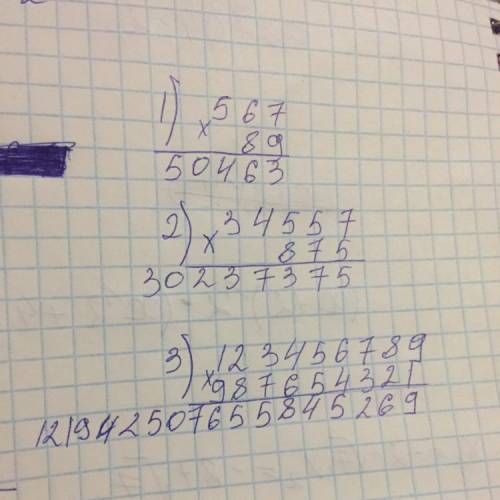 1) × 567
89
50463
2) × 34557
875
30237375
3) × 123456789
987654321
121942507655845269